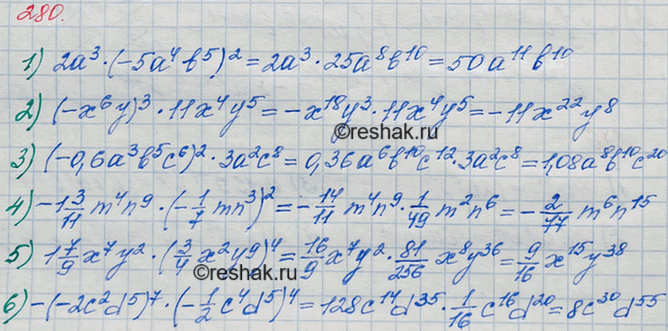 280.
1) 2a³·(-5a⁴b⁵)²=2a³·25a⁸b¹⁰=50a¹¹b¹⁰
2) (-x⁶y)³·11x⁴y⁵=-x¹⁸y³·11x⁴y⁵=-11x²²y⁸
©reshak.ru
3) (-0,6a³b⁵c⁶)²·3a²c⁸=0,36a⁶b¹⁰c¹²·3a²c⁸=1,08a⁸b¹⁰c²⁰
4) -1 3/11 m⁴n⁹·(-1/7 mn³)²=-14/11 m⁴n⁹·1/49 m²n⁶=-2/77 m⁶n¹⁵
5) 1 7/9 x⁷y²·(3/4 x²y⁹)⁴=16/9 x⁷y²·81/256 x⁸y³⁶=9/16 x¹⁵y³⁸
6) -(-2c²d⁵)⁷·(-1/2 c⁴d⁵)⁴=128c¹⁴d³⁵·1/16 c¹⁶d²⁰=8c³⁰d⁵⁵
©reshak.ru